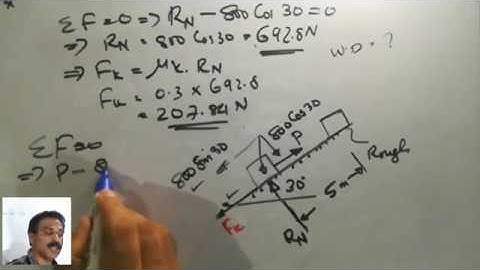 ΣF=0 => RN - 800 Cos 30 = 0
=> RN = 800 Cos 30 = 692.8N
W.D = ?
=> FK = μK. RN
FK = 0.3 x 692.8
= 207.84 N
ΣF=0
=> P - 8
800 Sin 30
800 Cos 30
P
Rough
30°
5m
FK
RN